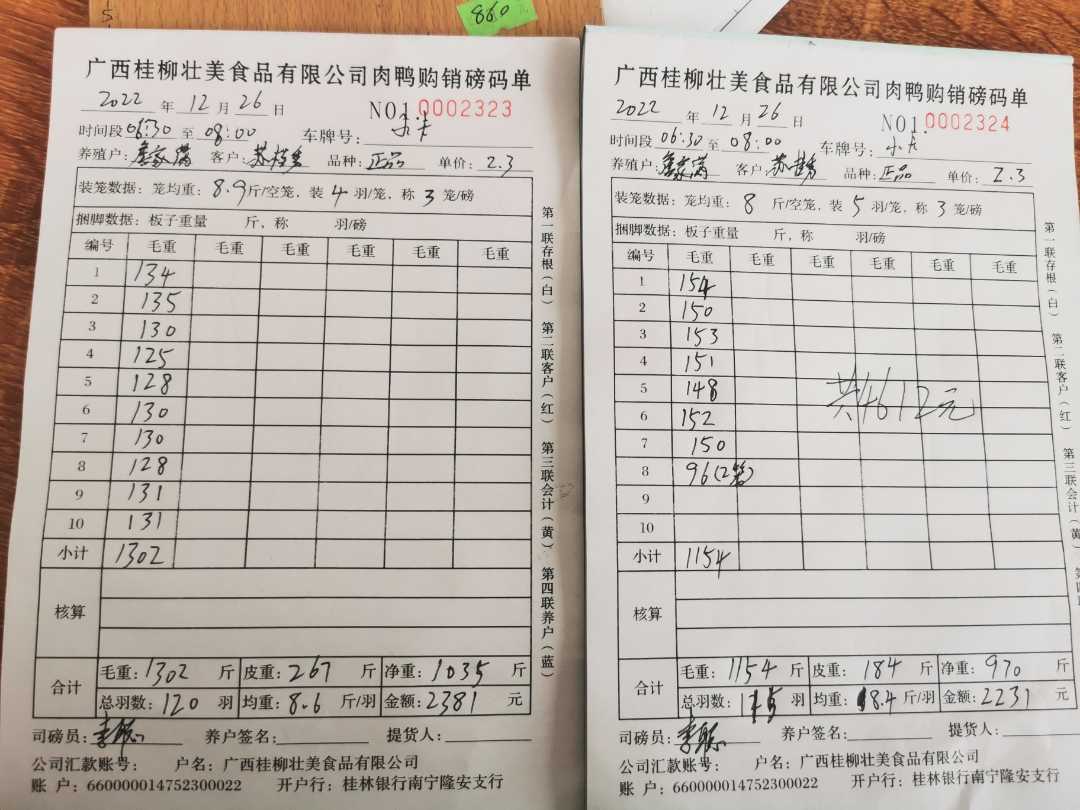 860元
广西桂柳壮美食品有限公司肉鸭购销磅码单
2022年12月26日 NO1 0002323
时间段06:30至08:00 车牌号：小卡
养殖户： 客户：苏 品种：正品 单价：2.3
装笼数据：笼均重：8.9斤/空笼，装4羽/笼，称3笼/磅
捆脚数据：板子重量 斤，称 羽/磅
编号 毛重 毛重 毛重 毛重 毛重 毛重
1 134
2 135
3 130
4 125
5 128
6 130
7 130
8 128
9 131
10 131
小计 1302
核算
合计 毛重：1302斤 皮重：267斤 净重：1035斤
总羽数：120羽 均重：8.6斤/羽 金额：2381元
司磅员：李聪 养户签名： 提货人：
公司汇款账号： 户名：广西桂柳壮美食品有限公司
账 户：660000014752300022 开户行：桂林银行南宁隆安支行
第一联存根（白） 第二联客户（红） 第三联会计（黄） 第四联养户（蓝）
广西桂柳壮美食品有限公司肉鸭购销磅码单
2022年12月26日 NO1 0002324
时间段06:30至08:00 车牌号：小卡
养殖户： 客户：苏 品种：正品 单价：2.3
装笼数据：笼均重：8斤/空笼，装5羽/笼，称3笼/磅
捆脚数据：板子重量 斤，称 羽/磅
编号 毛重 毛重 毛重 毛重 毛重 毛重
1 154
2 150
3 153
4 151
5 148
共4612元
6 152
7 150
8 96（2笼）
9
10
小计 1154
核算
合计 毛重：1154斤 皮重：184斤 净重：970斤
总羽数：115羽 均重：8.4斤/羽 金额：2231元
司磅员：李聪 养户签名： 提货人：
公司汇款账号： 户名：广西桂柳壮美食品有限公司
账 户：660000014752300022 开户行：桂林银行南宁隆安支行
第一联存根（白） 第二联客户（红） 第三联会计（黄） 第四联